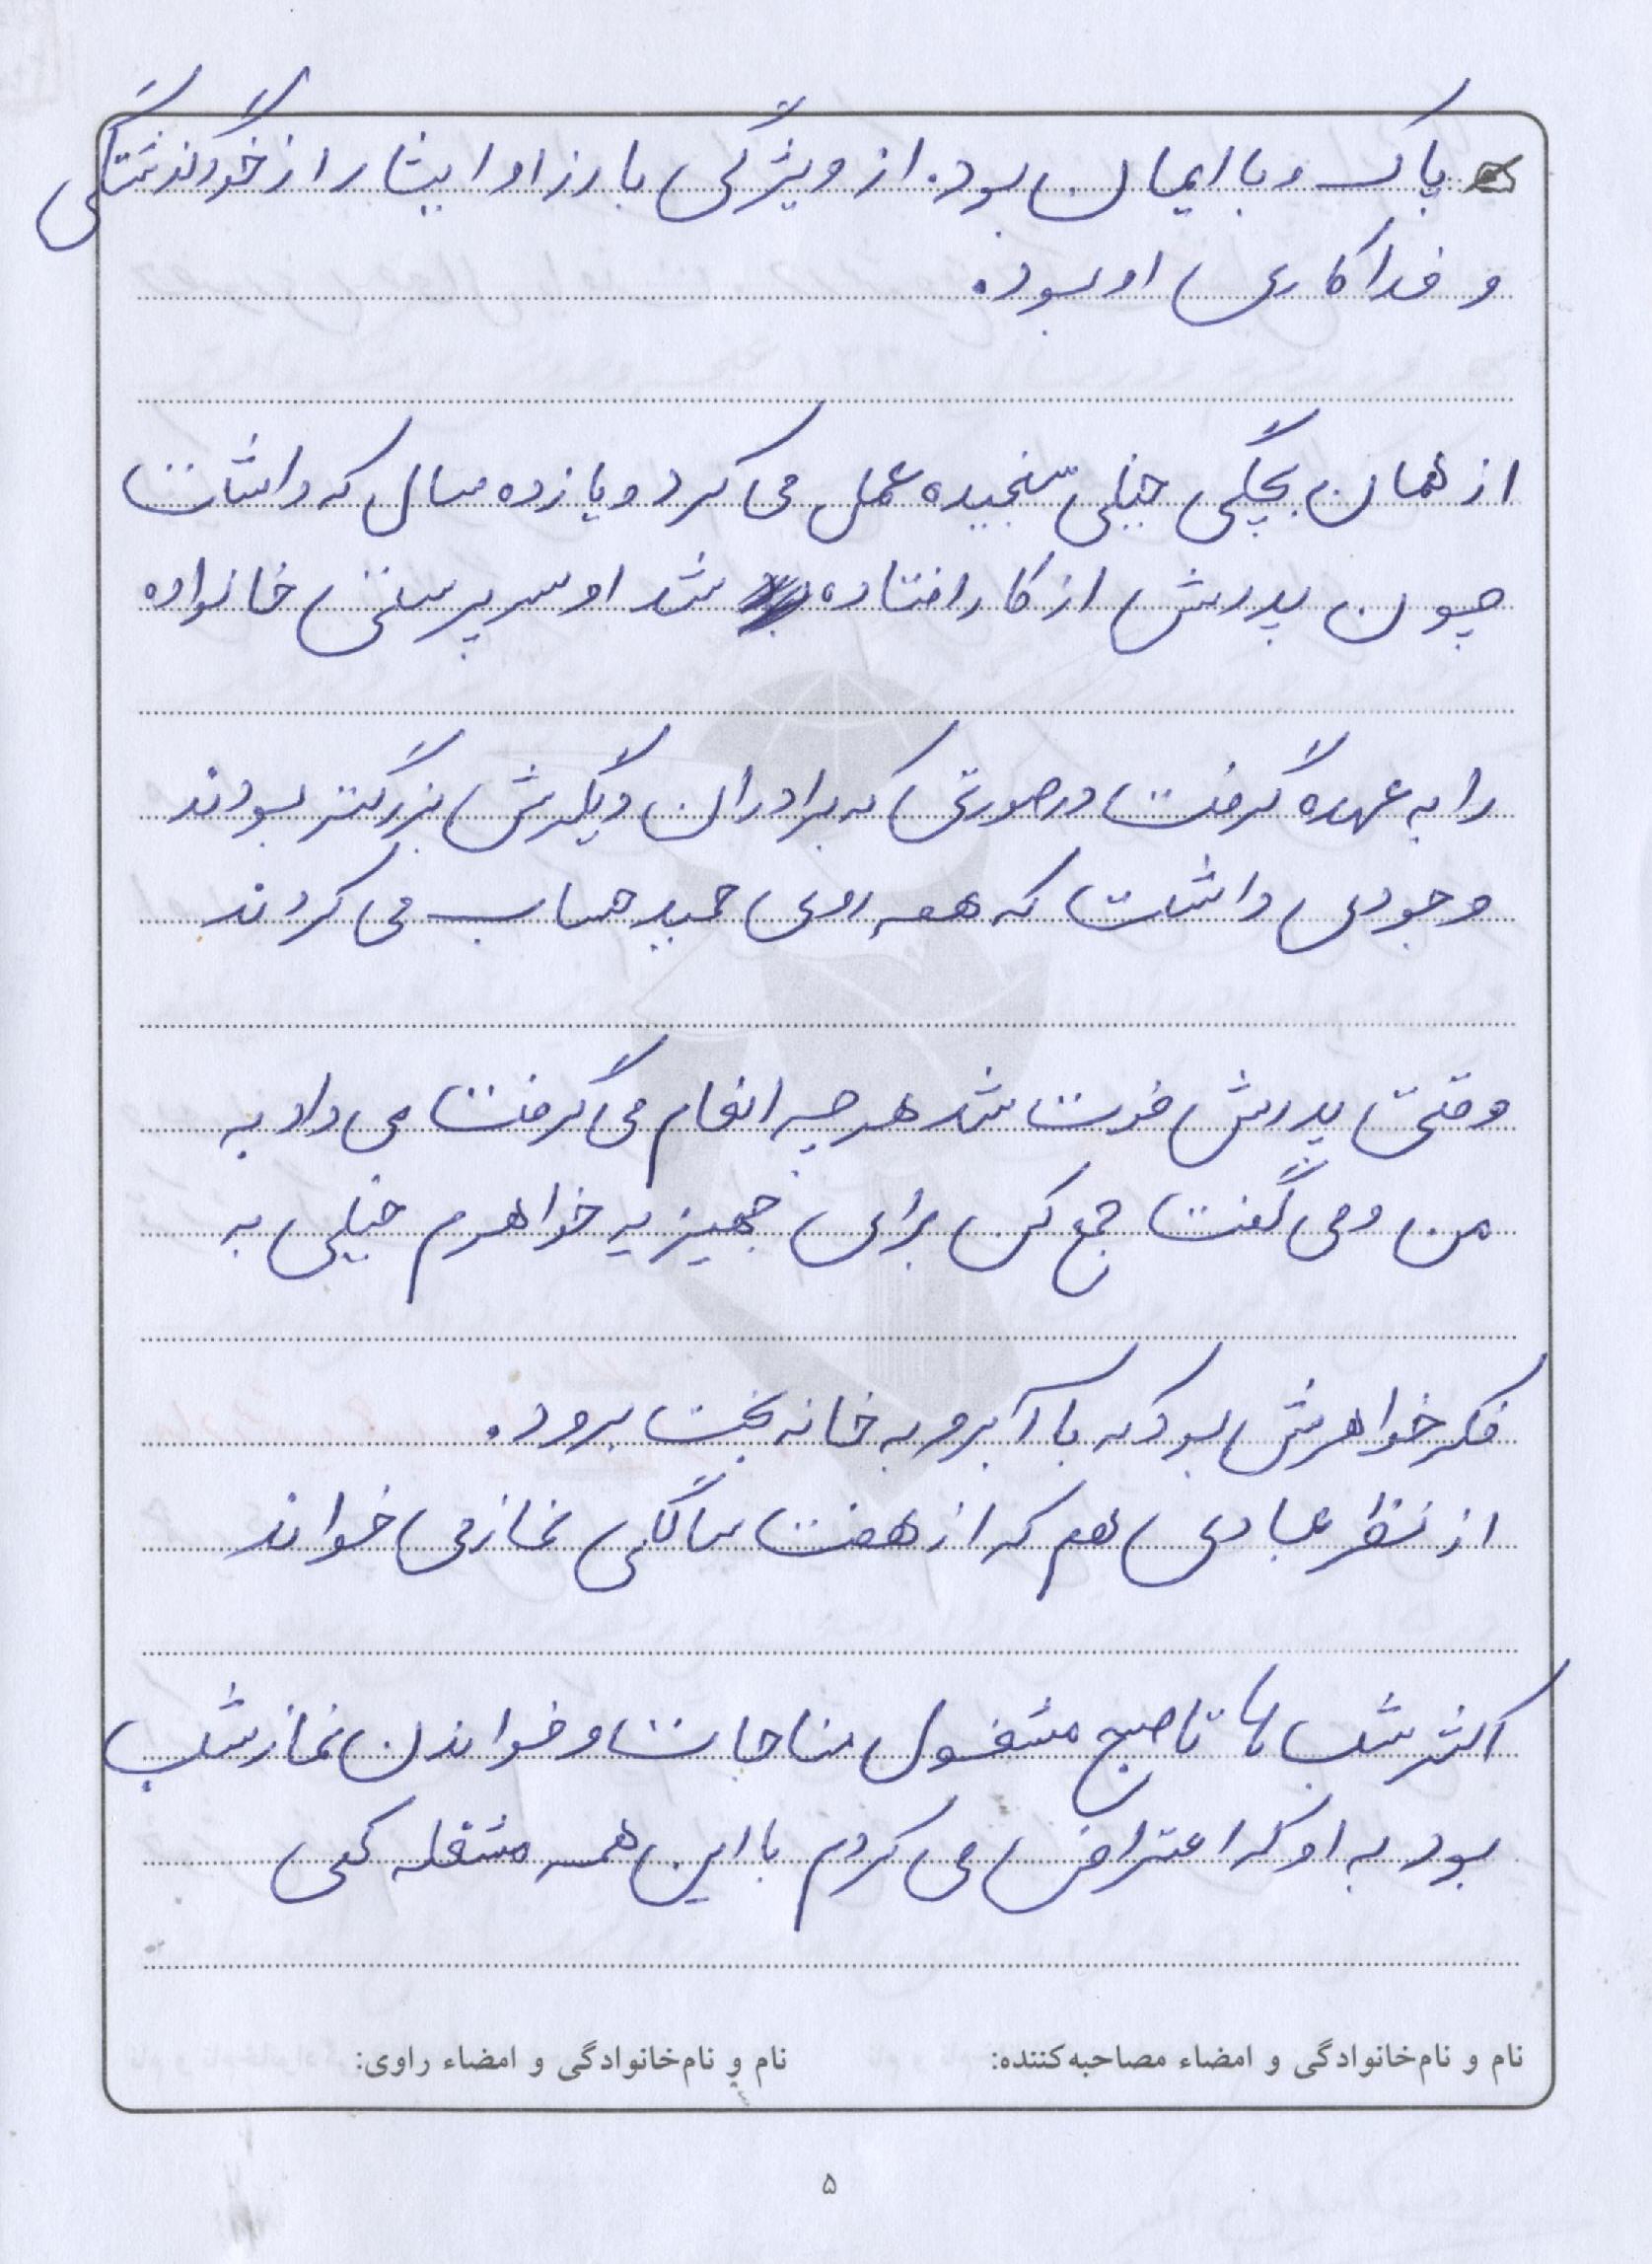 پاک و با ایمان بود. از ویژگی بارز او ایثار از خودگذشتگی
و فداکاری او بود.
از همان بچگی خیلی سنجیده عمل می کرد و یازده سال که داشت
چون پدرش از کار افتاده شد او سرپرستی خانواده
را به عهده گرفت در صورتی که برادران دیگرش بزرگتر بودند
وجودی داشت که همه روی حمید حساب می کردند
وقتی پدرش فوت شد هر چه انعام می گرفت می داد به
من و می گفت جمع کن برای جهیزیه خواهرم خیلی به
فکر خواهرش بود که با آبرو به خانه بخت برود.
از نظر عبادی هم که از هفت سالگی نماز می خواند
اکثر شب ها تا صبح مشغول مناجات و خواندن نماز شب
بود به او که اعتراض می کردم با این همه مشغله کمی
نام و نام‌خانوادگی و امضاء مصاحبه‌کننده: نام و نام‌خانوادگی و امضاء راوی:
۵